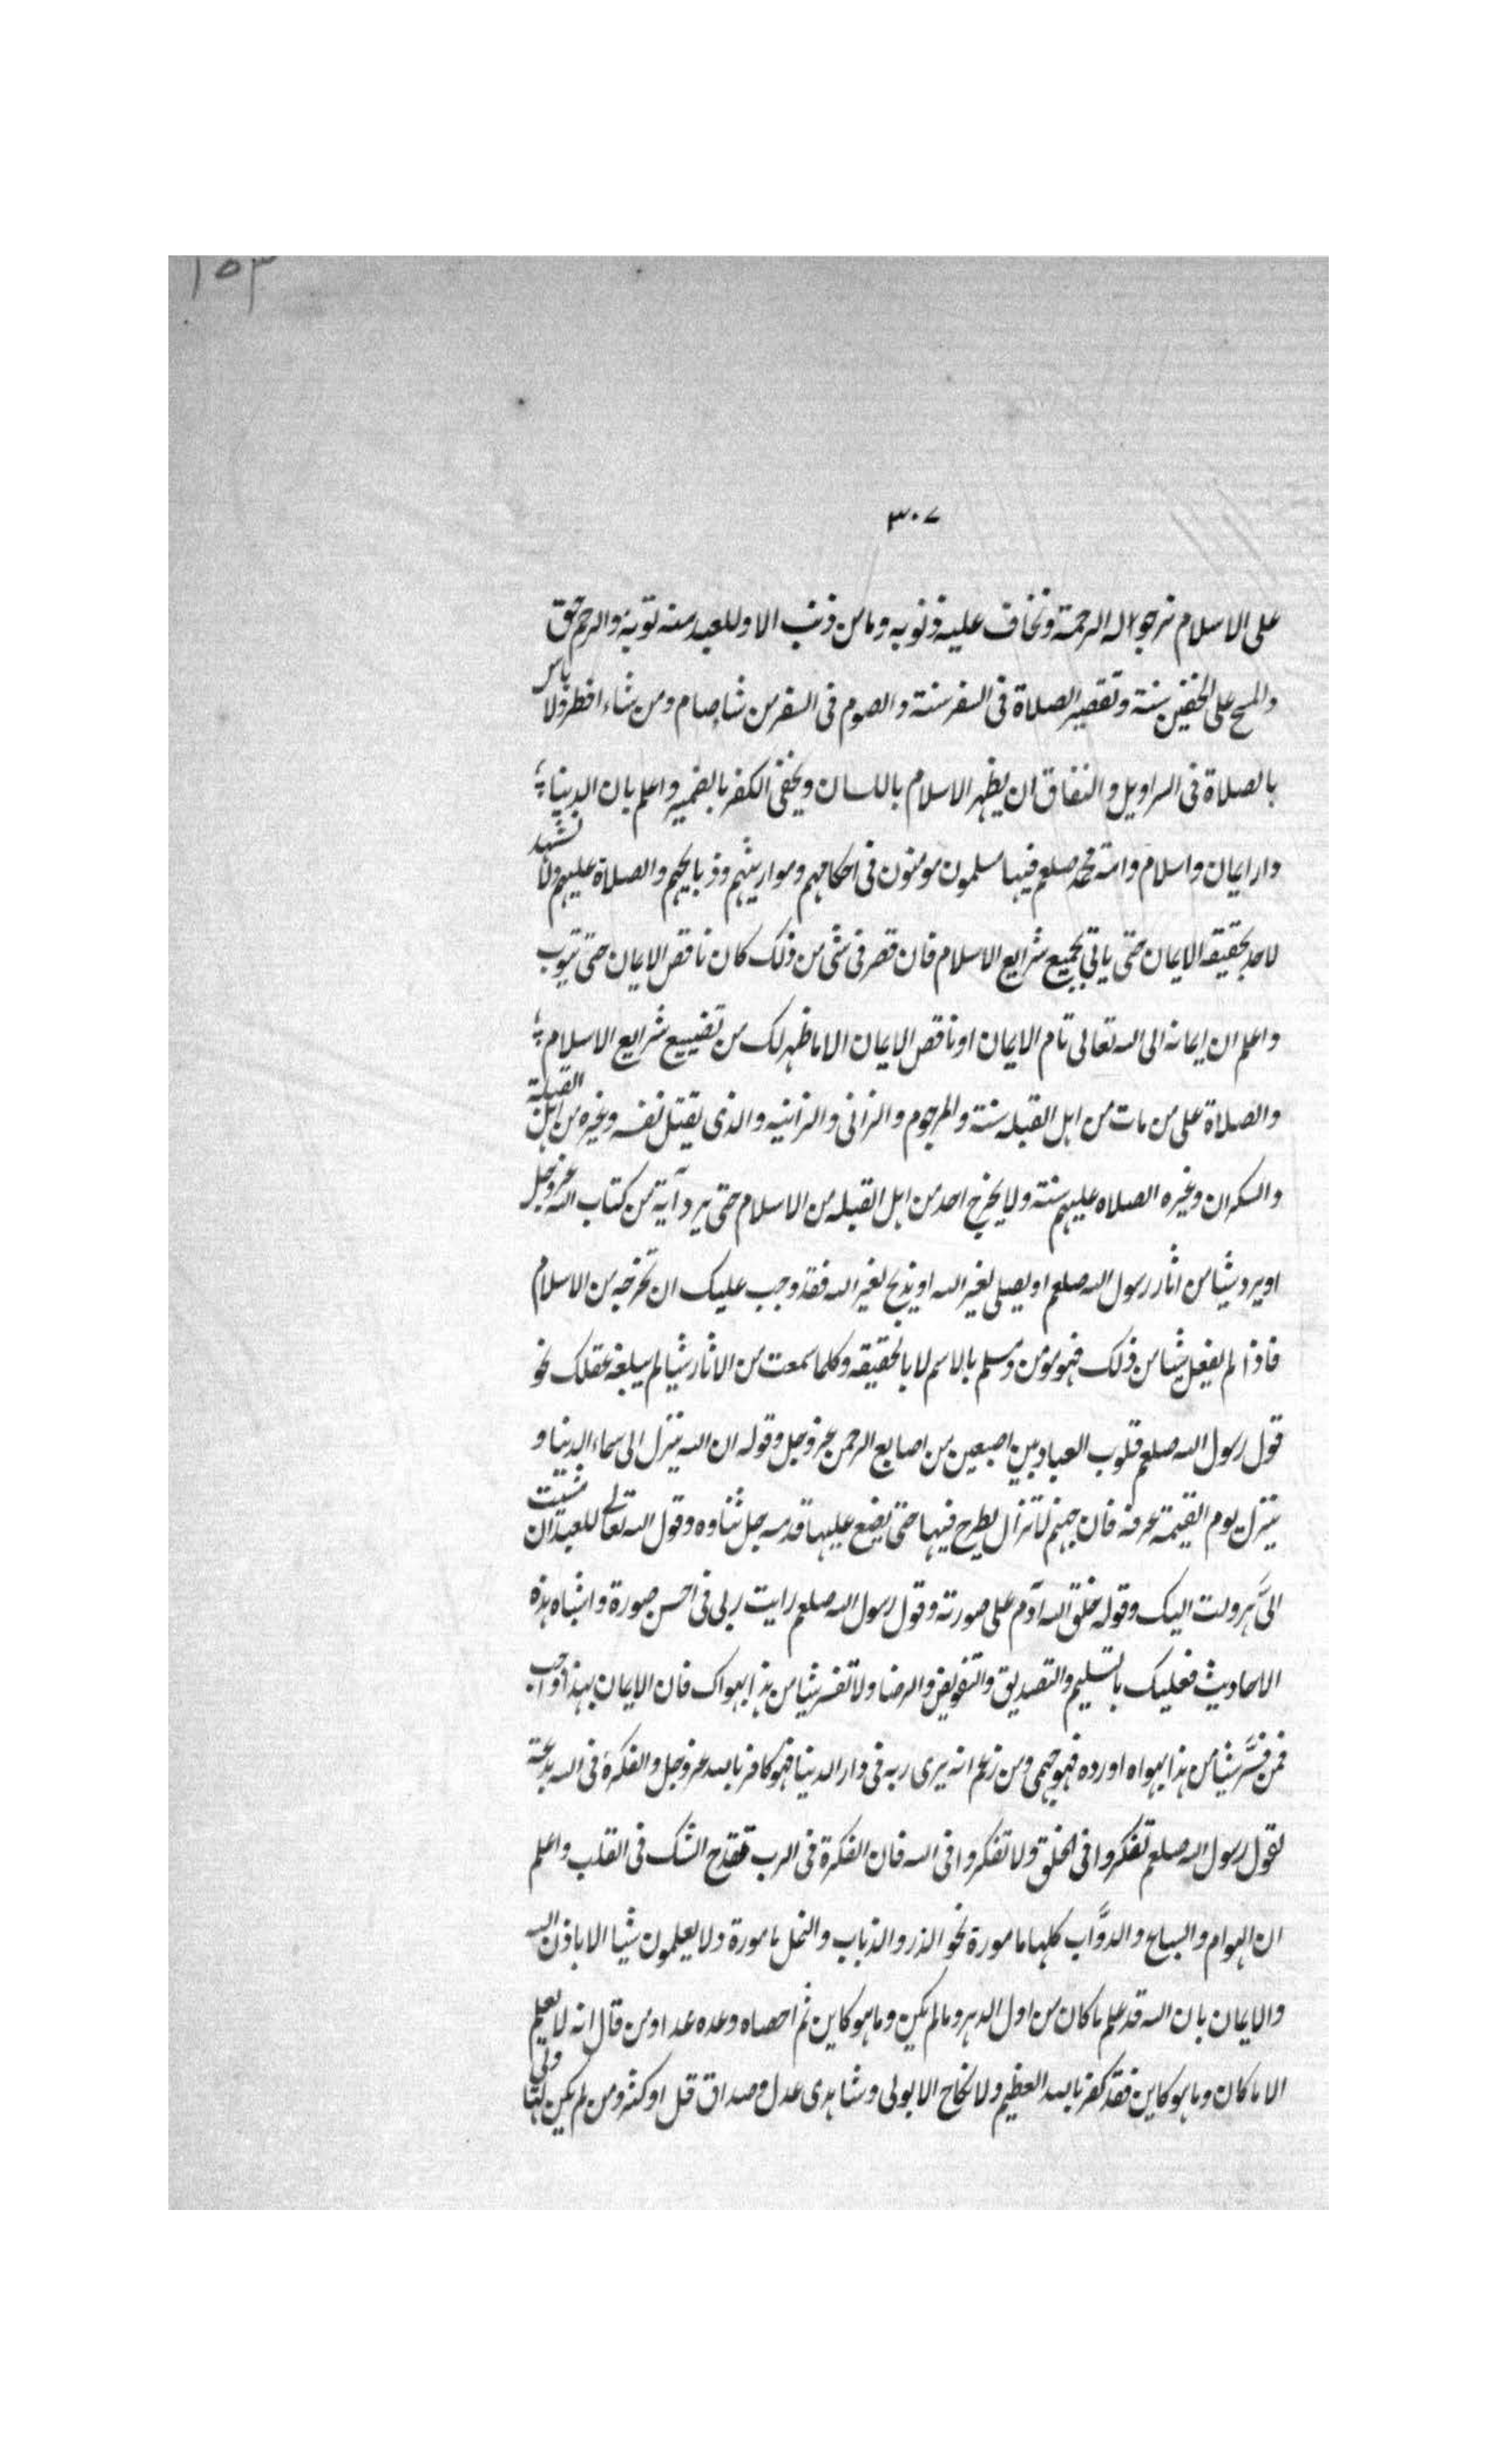 ١٥٣
٣٠٧
على الاسلام نرجو له الرحمة ونخاف عليه ذنوبه وما من ذنب الا وللعبد منه توبة والرجم حق
والمسح على الخفين سنة وتقصير الصلاة فى السفر سنة والصوم فى السفر من شا صام ومن شاء افطر ولا باس
بالصلاة فى السراويل والنفاق ان يظهر الاسلام باللسان ويخفى الكفر بالضمير واعلم بان الدنيا
دار ايمان واسلام وامة محمد صلعم فيها مسلمون مومنون فى احكامهم ومواريثهم وذبايحهم والصلاة عليهم ولا نشهد
لاحد بحقيقه الايمان حتى ياتى بجميع شرايع الاسلام فان قصر فى شى من ذلك كان ناقص الايمان حتى يتوب
واعلم ان ايمانه الى الله تعالى تام الايمان او ناقص الايمان الا ما ظهر لك من تضييع شرايع الاسلام
والصلاة على من مات من اهل القبله سنة والمرجوم والزانى والزانيه والذى يقتل نفسه وغيره من اهل القبلة
والسكران وغيره الصلاه عليهم سنة ولا يخرج احد من اهل القبله من الاسلام حتى يرد آية من كتاب الله عز وجل
او يرد شيا من اثار رسول الله صلعم او يصلى لغير الله او يذبح لغير الله فقد وجب عليك ان تخرجه من الاسلام
فاذا لم يفعل شيا من ذلك فهو مومن ومسلم بالاسم لا بالحقيقه وكلما سمعت من الاثار شيا لم يبلغه عقلك نحو
قول رسول الله صلعم قلوب العباد بين اصبعين من اصابع الرحمن عز وجل وقوله ان الله ينزل الى سماء الدنيا و
ينزل يوم القيمة عرفة فان جهنم لا تزال يطرح فيها حتى يضع عليها قدمه جل ثناوه وقول الله تعالى للعبد ان مشيت
الىَّ هرولت اليك وقوله خلق الله آدم على صورته وقول رسول الله صلعم رايت ربى فى احسن صورة واشباه هذه
الاحاديث فعليك بالتسليم والتصديق والتفويض والرضا ولا تفسر شيا من هذا بهواك فان الايمان بهذا واجب
فمن فسَّر شيا من هذا بهواه او رده فهو جهمى ومن زعم انه يرى ربه فى دار الدنيا فهو كافر بالله عز وجل والفكرة فى الله بدعة
لقول رسول الله صلعم تفكروا فى الخلق ولا تفكروا فى الله فان الفكرة فى الرب تقدح الشك فى القلب واعلم
ان الهوام والسباع والدوَّاب كلها مامورة نحو الذر والذباب والنمل مامورة ولا يعلمون شيا الا باذن الله
والايمان بان الله قد علم ما كان من اول الدهر وما لم يكن وما هو كاين ثم احصاه وعده عدا ومن قال انه لا يعلم
الا ما كان وما هو كاين فقد كفر بالله العظيم ولا نكاح الا بولى وشاهدى عدل وصداق قل او كثر ومن لم يكن لها ولى